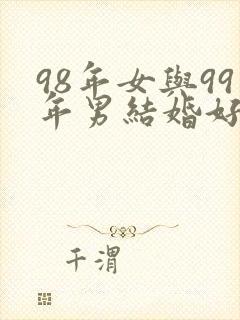 98年女與99
年男結婚好
千渭